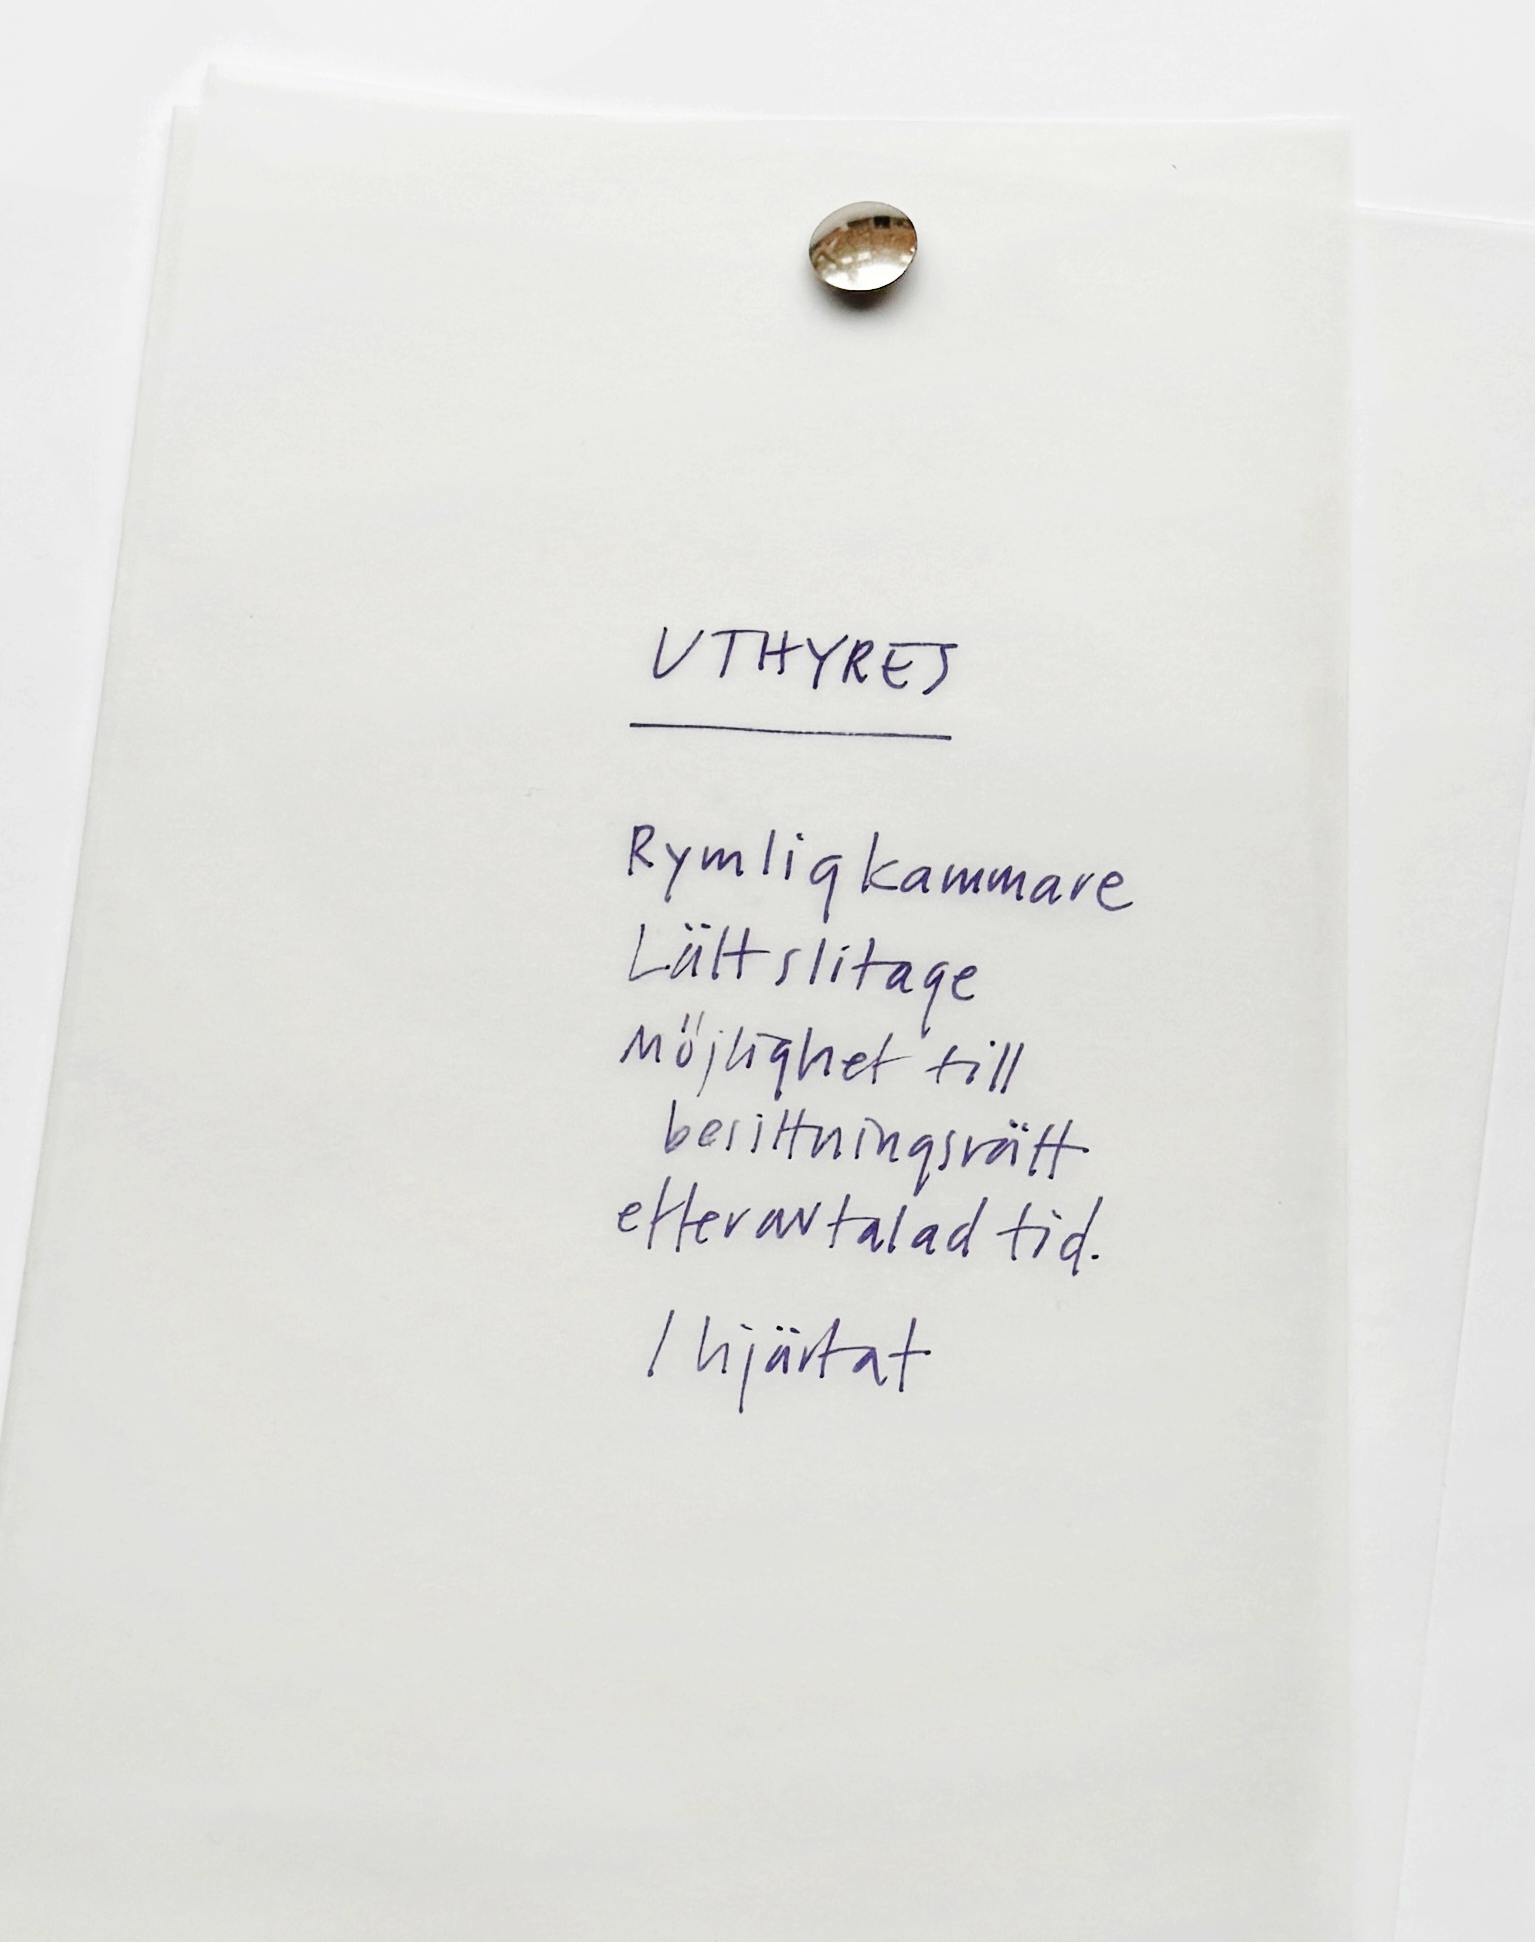 UTHYRES
Rymlig kammare
Lätt slitage
Möjlighet till
besittningsrätt
efter avtalad tid.
/ hjärtat